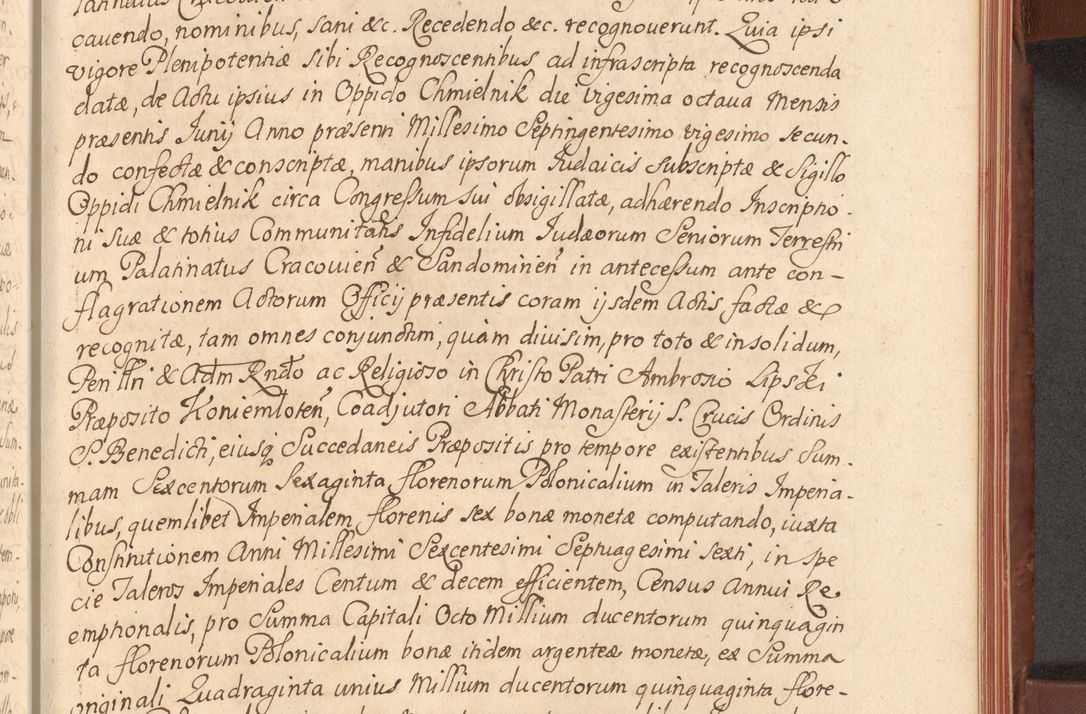 cavendo, nominibus, sani &c. Recedendo &c. recognoverunt. Quia ipsi
vigore Plenipotentiæ sibi Recognoscentibus ad infrascripta recognoscenda
datæ, de Actu ipsius in Oppido Chmielnik die vigesima octava Mensis
præsentis Junij Anno præsenti Millesimo Septingentesimo vigesimo secun-
do confectæ & conscriptæ, manibus ipsorum Judaicis subscriptæ & Sigillo
Oppidi Chmielnik circa Congressum sui obsigillatæ, adhærendo Inscriptio-
ni suæ & totius Communitatis Infidelium Judæorum Seniorum Terrestri
um Palatinatus Cracovien̄ & Sandomirien̄ in antecessum ante con-
flagrationem Actorum Officij præsentis coram ijsdem Actis factæ &
recognitæ, tam omnes conjunctim, quàm divisim, pro toto & insolidum,
Per Illri & Adm Rndo ac Religioso in Christo Patri Ambrosio Lipski
Præposito Koniemloten̄, Coadjutori Abbati Monasterij S. Crucis Ordinis
S. Benedicti, eiusq Succedaneis Præpositis pro tempore existentibus Sum-
mam Sexcentorum Sexaginta florenorum Polonicalium in Taleris Imperia-
libus, quemlibet Imperialem florenis sex bonæ monetæ computando, iuxta
Constitutionem Anni Millesimi Sexcentesimi Septuagesimi sexti, in spe
cie Taleros Imperiales Centum & decem efficientem, Census Annui Re
emptionalis, pro Summa Capitali Octo Millium ducentorum quinquagin
ta florenorum Polonicalium bonæ itidem argenteæ monetæ, ex Summa
originali Quadraginta unius Millium ducentorum quinquaginta flore-